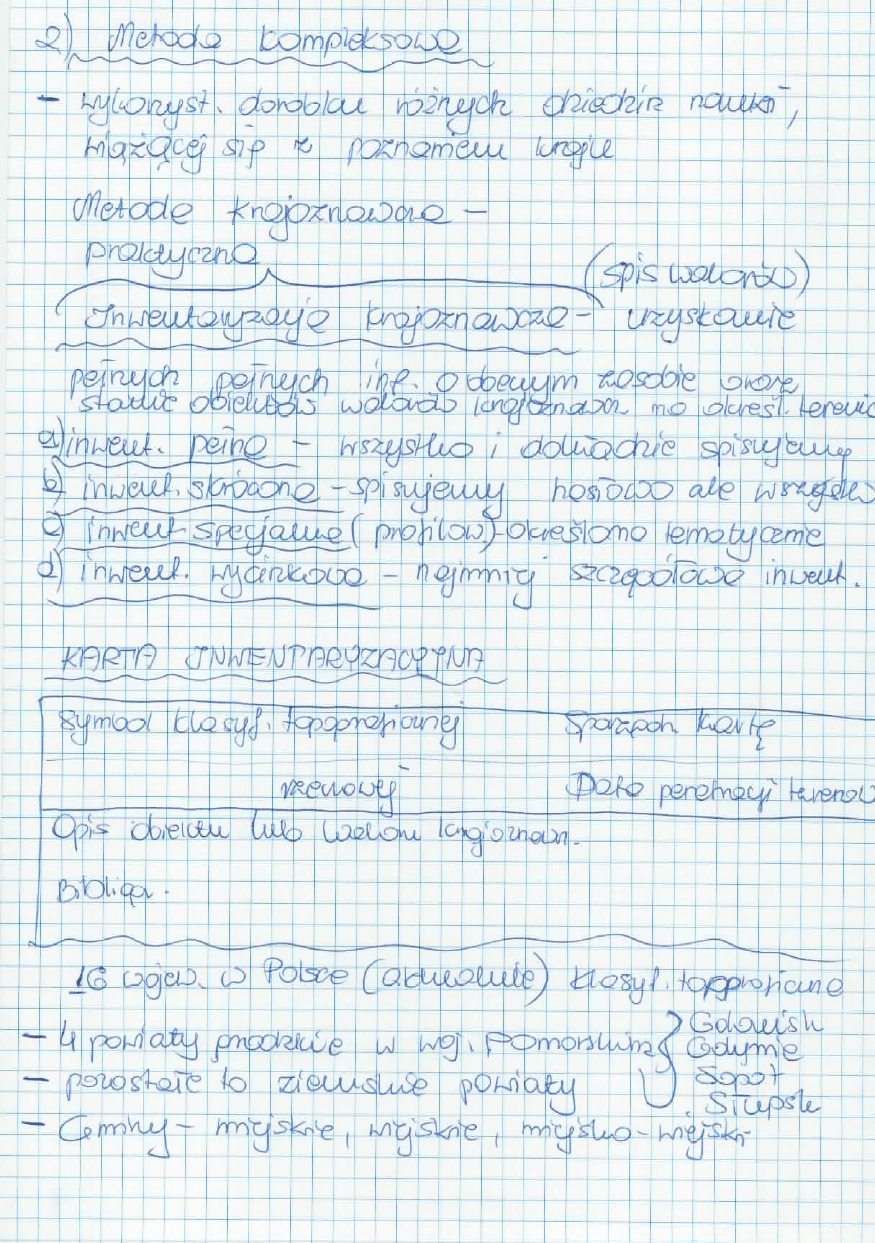 2) Metoda kompleksowa
- wykorzyst. dorobku różnych dziedzin nauki,
wiążącej się z poznaniem kraju
Metoda krajoznawcza -
praktyczna
(spis walorów)
Inwentaryzacja krajoznawcza - uzyskanie
pełnych pełnych inf. o obecnym zasobie oraz
stanie obiektów walorów krajoznawcz na określ. terenie
a) inwent. pełna - wszystko i dokładnie spisujemy
b) inwent. skrócona - spisujemy hasłowo ale wszystko
c) inwent. specjalna (profilow) - określono tematycznie
d) inwent. wycinkowa - najmniej szczegółowa inwent.
KARTA INWENTARYZACYJNA
Symbol klasyf. topograficznej Sporządz. kartę
rzeczowej Data penetracji terenow
Opis obiektu lub waloru krajoznawcz.
Bibliogr.
16 wojew. w Polsce (aktualnie) klasyf. topograficzne
- 4 powiaty grodzkie w woj. pomorskim { Gdańsk
Gdynia
- pozostałe to ziemskie powiaty Sopot
Słupsk
- Gminy - miejskie, wiejskie, miejsko-wiejski